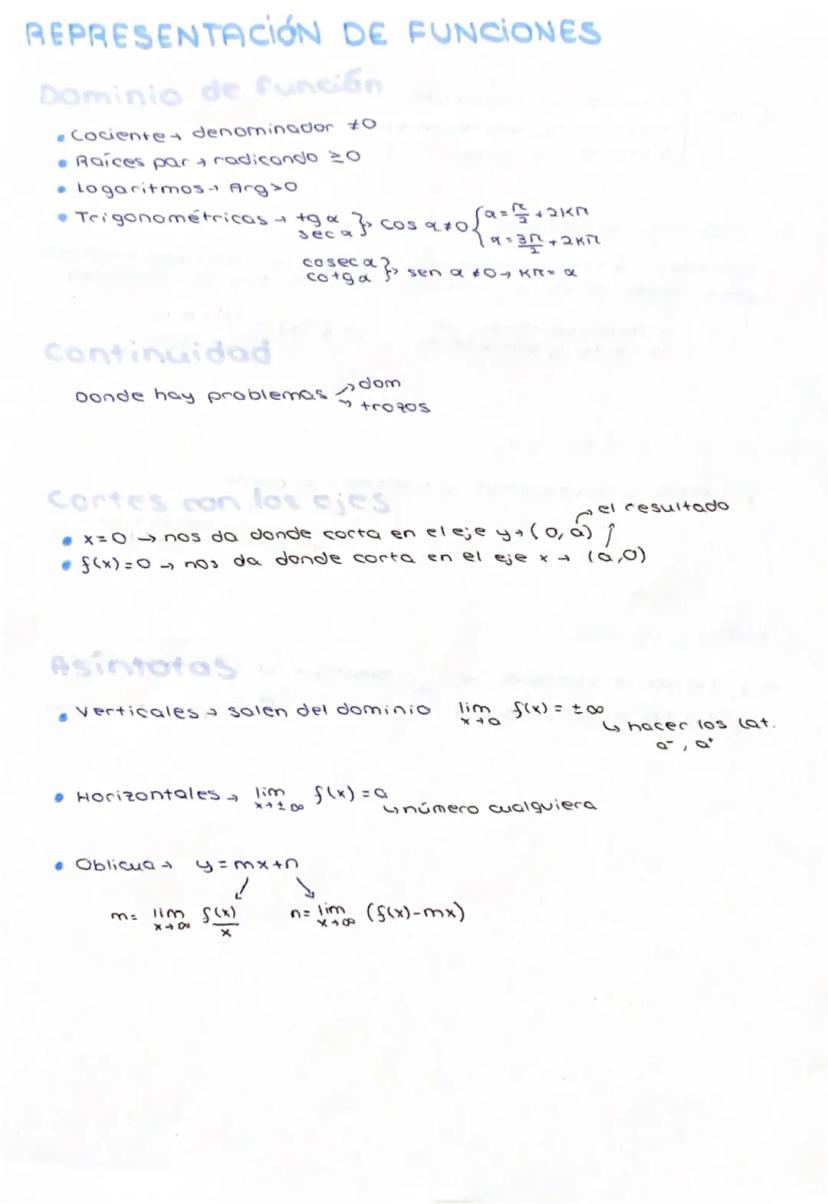 REPRESENTACIÓN DE FUNCIONES
Dominio de función
• Cociente → denominador ≠0
• Raíces par → radicando ≥0
• Logaritmos → Arg>0
• Trigonométricas → tg α } cos α≠0 { α = π/2 + 2Kπ
sec α } α = 3π/2 + 2Kπ
cosec α } sen α ≠0 → Kπ = α
cotg α }
Continuidad
Donde hay problemas → dom
→ trozos
Cortes con los ejes
→ el resultado
• x=0 → nos da donde corta en el eje y → (0, a) ↑
• f(x)=0 → nos da donde corta en el eje x → (a,0)
Asíntotas
• Verticales → salen del dominio lim x→a f(x) = ±∞
↳ hacer los lat.
a⁻, a⁺
• Horizontales → lim x→±∞ f(x) = a
↳ número cualquiera
• Oblicua → y = mx+n
m= lim x→∞ f(x)/x n= lim x→∞ (f(x)-mx)